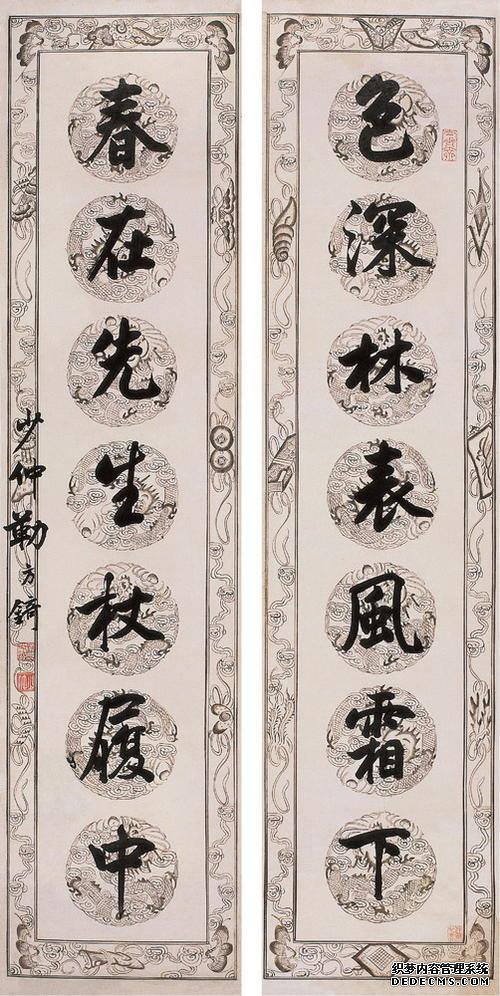 色深林表風霜下
春在先生杖履中
少仲勒方錡
织梦内容管理系统
DEDECMS.COM